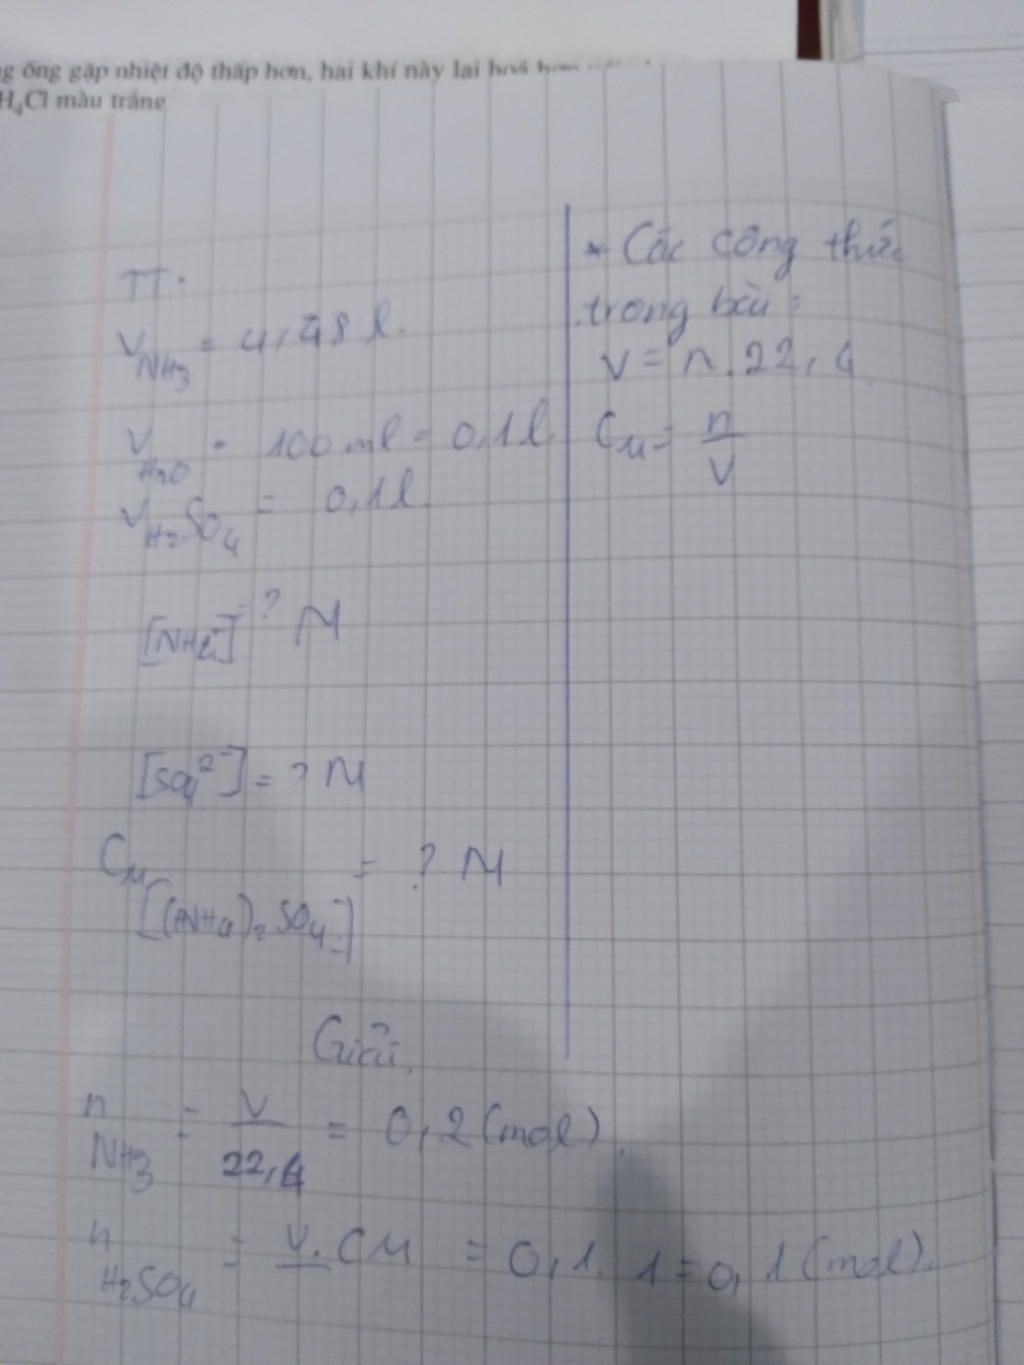 ng ống gặp nhiệt độ thấp hơn, hai khí này lại hoá hợp
H₄Cl màu trắng
TT.
V_NH3 = 4,48 l.
V_H2O = 100 ml = 0,1 l
V_H2SO4 = 0,1 l.
[NH4⁻] = ? M
[SO4²⁻] = ? M
C_M [(NH4)2SO4] = ? M
* Các công thức
trong bài :
V = n.22,4
C_M = n/V
Giải.
n_NH3 = V/22,4 = 0,2 (mol).
n_H2SO4 = V.CM = 0,1. 1 = 0,1 (mol).